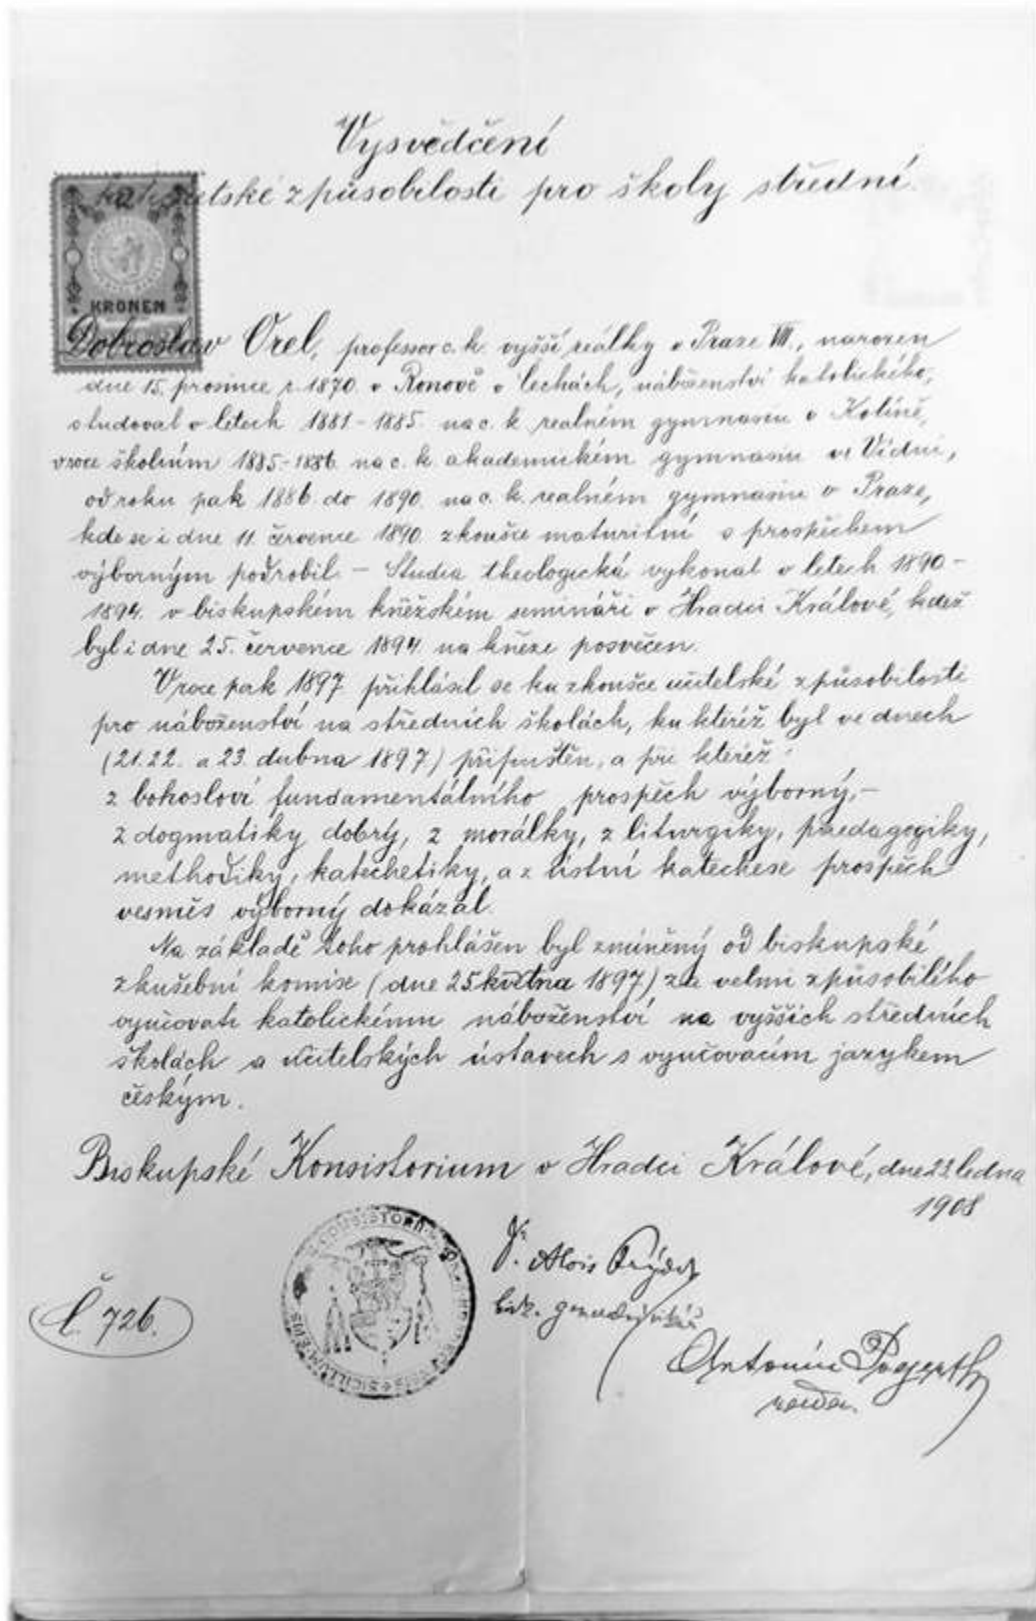 Vysvědčení
způsobilosti pro školy střední.
KRONEN
Dobroslav Orel, professor c. k. vyšší reálky v Praze VII., narozen
dne 15. prosince r. 1870. v Ronově v Čechách, náboženství katolického,
studoval v letech 1881-1885. na c. k. realném gymnasiu v Kolíně,
v roce školním 1885-1886. na c. k. akademickém gymnasiu ve Vídni,
od roku pak 1886. do 1890. na c. k. realném gymnasiu v Praze,
kde se i dne 11. července 1890. zkoušce maturitní s prospěchem
výborným podrobil. - Studia theologická vykonal v letech 1890-
1894. v biskupském kněžském semináři v Hradci Králové, kdež
byl i dne 25. července 1894. na kněze posvěcen.
V roce pak 1897 přihlásil se ku zkoušce učitelské způsobilosti
pro náboženství na středních školách, ku kteréž byl ve dnech
(21. 22. a 23. dubna 1897) připuštěn, a při kteréž:
z bohosloví fundamentálního prospěch výborný, -
z dogmatiky dobrý, z morálky, z liturgiky, paedagogiky,
methodiky, katechetiky, a z ústní katechese prospěch
vesměs výborný dokázal.
Na základě toho prohlášen byl zmíněný od biskupské
zkušební komise (dne 25 května 1897) za velmi způsobilého
vyučovati katolickému náboženství na vyšších středních
školách a učitelských ústavech s vyučovacím jazykem
českým.
Biskupské Konsistorium v Hradci Králové, dne 22. ledna
1908
Alois
Č. 726.
Antonín